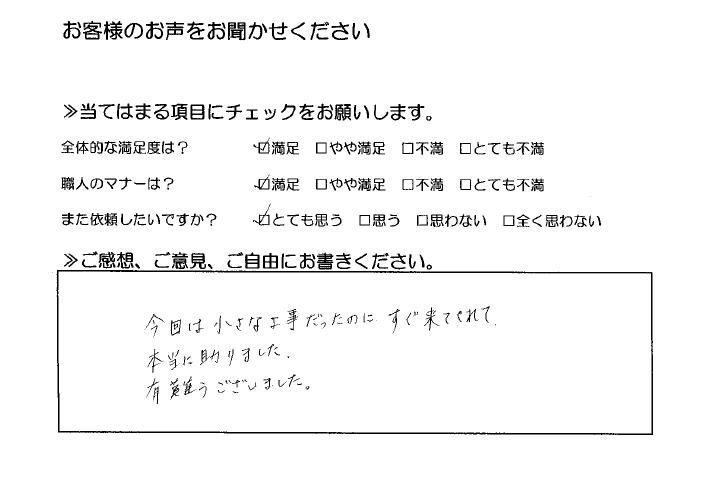 お客様のお声をお聞かせください
≫当てはまる項目にチェックをお願いします。
全体的な満足度は？ ☑満足 □やや満足 □不満 □とても不満
職人のマナーは？ ☑満足 □やや満足 □不満 □とても不満
また依頼したいですか？ ☑とても思う □思う □思わない □全く思わない
≫ご感想、ご意見、ご自由にお書きください。
今回は小さな工事だったのに すぐ来てくれて
本当に助りました.
有難うございました。